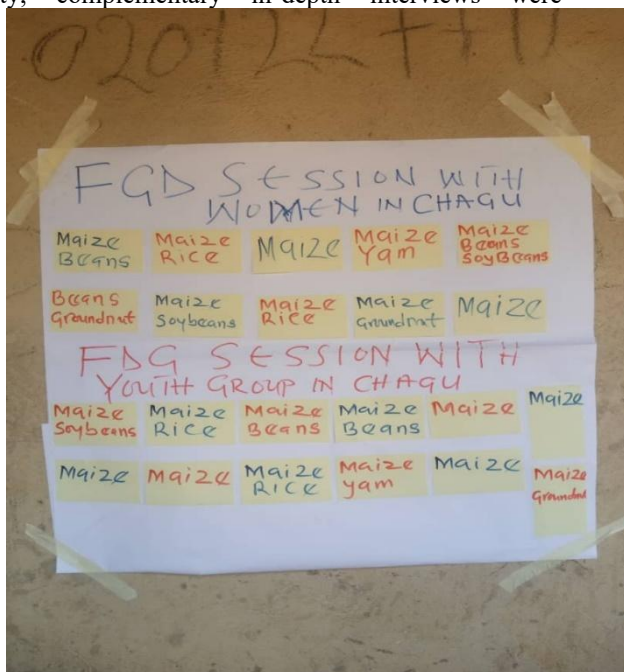 ty, complementary in-depth interviews were
FGD SESSION WITH
WOMEN IN CHAGU
Maize
Beans
Maize
Rice
Maize
Maize
Yam
Maize
Beans
SoyBeans
Beans
Groundnut
Maize
Soybeans
Maize
Rice
Maize
Groundnut
Maize
FDG SESSION WITH
YOUTH GROUP IN CHAGU
Maize
Soybeans
Maize
Rice
Maize
Beans
Maize
Beans
Maize
Maize
Maize
Maize
Maize
Rice
Maize
yam
Maize
Maize
Groundnut